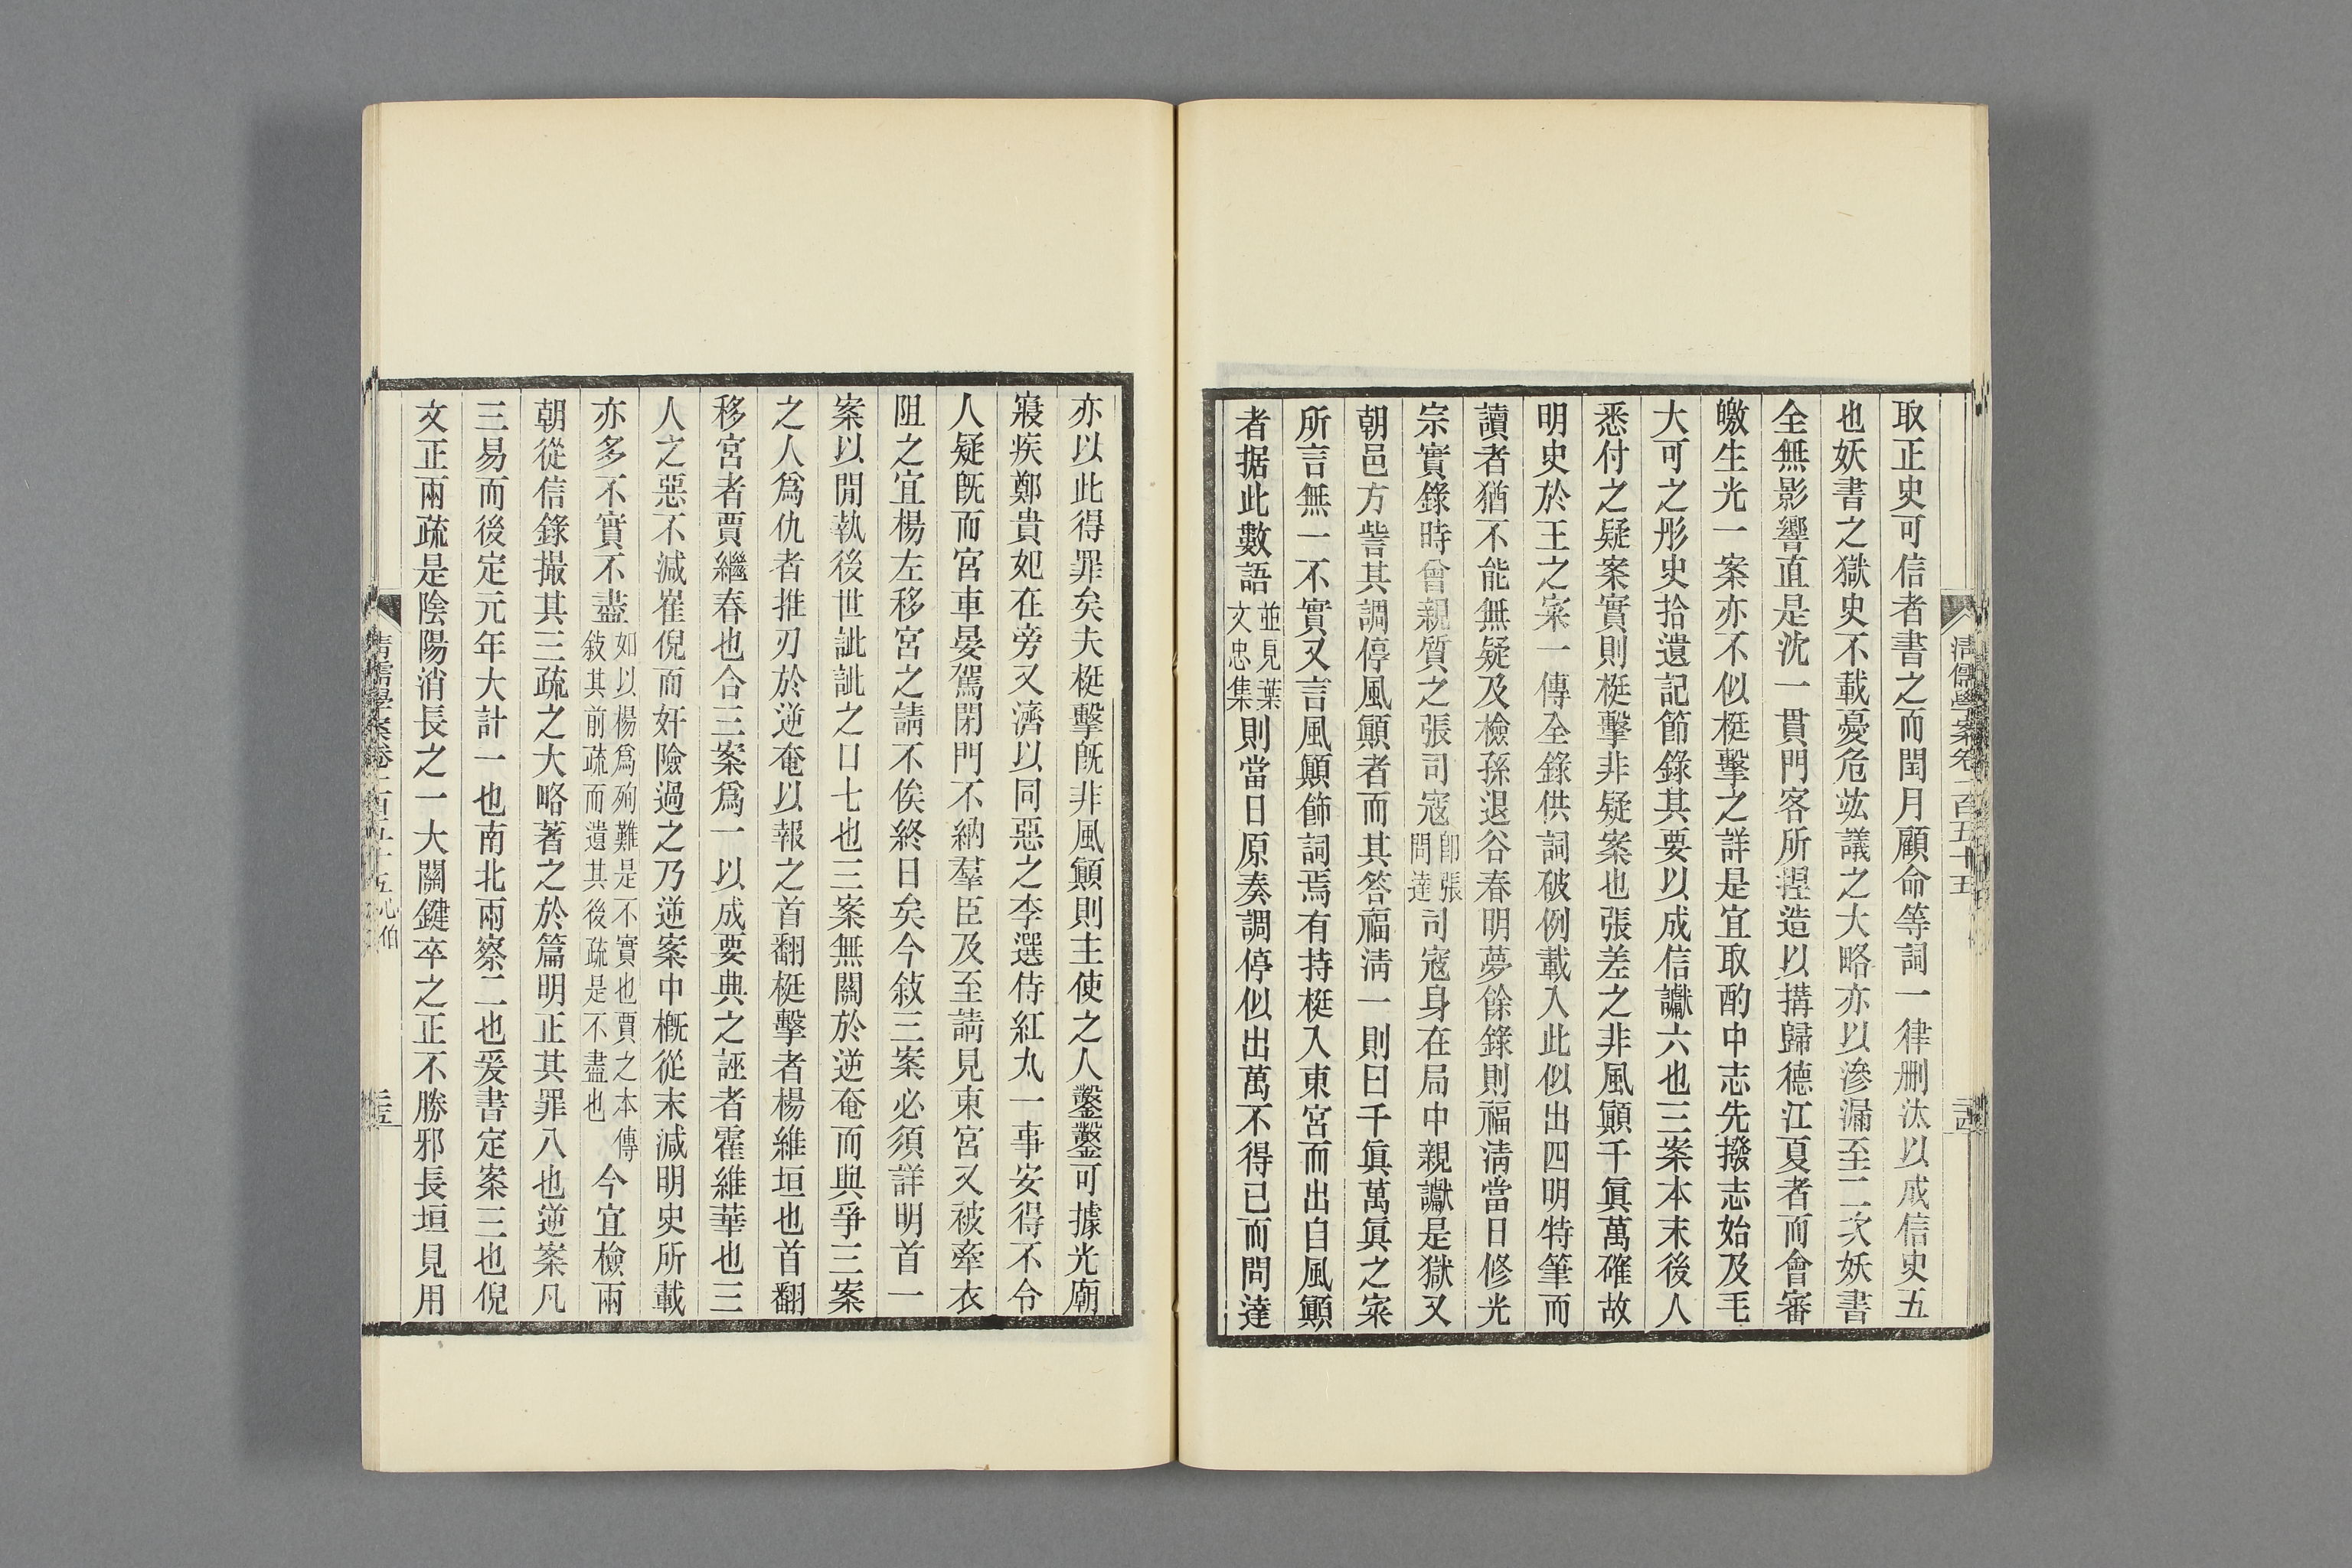 清儒學案卷一百五十五
二十四
取正史可信者書之而閏月顧命等詞一律刪汰以成信史五
也妖書之獄史不載憂危竑議之大略亦以滲漏至二次妖書
全無影響直是沈一貫門客所揑造以搆歸德江夏者而會審
皦生光一案亦不似梃擊之詳是宜取酌中志先撥志始及毛
大可之彤史拾遺記節錄其要以成信讞六也三案本末後人
悉付之疑案實則梃擊非疑案也張差之非風顚千眞萬確故
明史於王之寀一傳全錄供詞破例載入此似出四明特筆而
讀者猶不能無疑及檢孫退谷春明夢餘錄則福淸當日修光
宗實錄時曾親質之張司寇卽張問達司寇身在局中親讞是獄又
朝邑方訾其調停風顚者而其答福淸一則曰千眞萬眞之寀
所言無一不實又言風顚飾詞焉有持梃入東宮而出自風顚
者据此數語並見葉文忠集則當日原奏調停似出萬不得已而問達
亦以此得罪矣夫梃擊旣非風顚則主使之人鑿鑿可據光廟
寢疾鄭貴妃在旁又濟以同惡之李選侍紅丸一事安得不令
人疑旣而宮車晏駕閉門不納羣臣及至請見東宮又被牽衣
阻之宜楊左移宮之請不俟終日矣今敍三案必須詳明首一
案以閒執後世訿訿之口七也三案無關於逆奄而與爭三案
之人爲仇者推刃於逆奄以報之首翻梃擊者楊維垣也首翻
移宮者賈繼春也合三案爲一以成要典之誣者霍維華也三
人之惡不減崔倪而奸險過之乃逆案中槪從末減明史所載
亦多不實不盡如以楊爲殉難是不實也賈之本傳敍其前疏而遺其後疏是不盡也今宜檢兩
朝從信錄撮其三疏之大略著之於篇明正其罪八也逆案凡
三易而後定元年大計一也南北兩察二也爰書定案三也倪
文正兩疏是陰陽消長之一大關鍵卒之正不勝邪長垣見用
清儒學案卷一百五十五 心伯
二十五